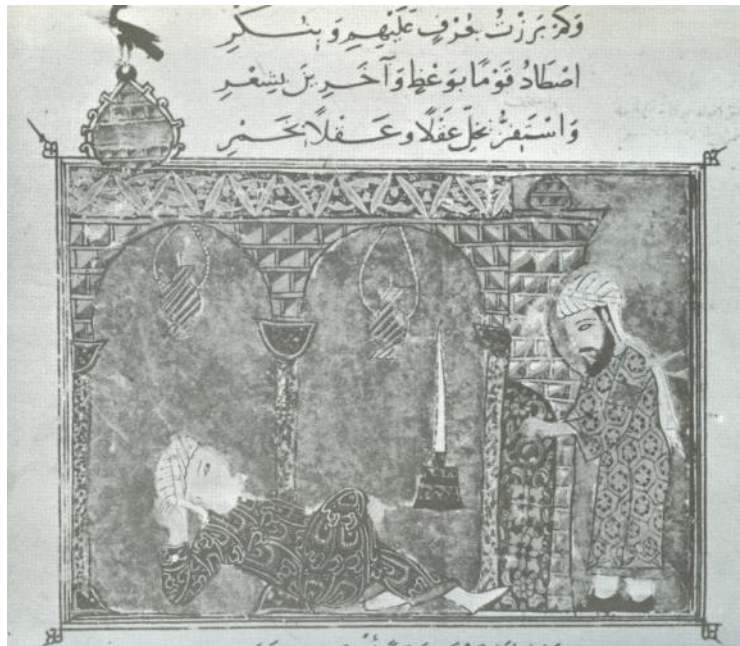 وَكَمْ بَرَزْتُ بِعُرْفٍ عَلَيْهِمِ وَبِنُكْرِ
اصْطَادُ قَوْمًا بِوَعْظٍ وَآخَرِينَ بِشِعْرِ
وَاسْتَفِزُّ بِخَلٍّ عَقْلًا وَعَقْلًا بِخَمْرِ